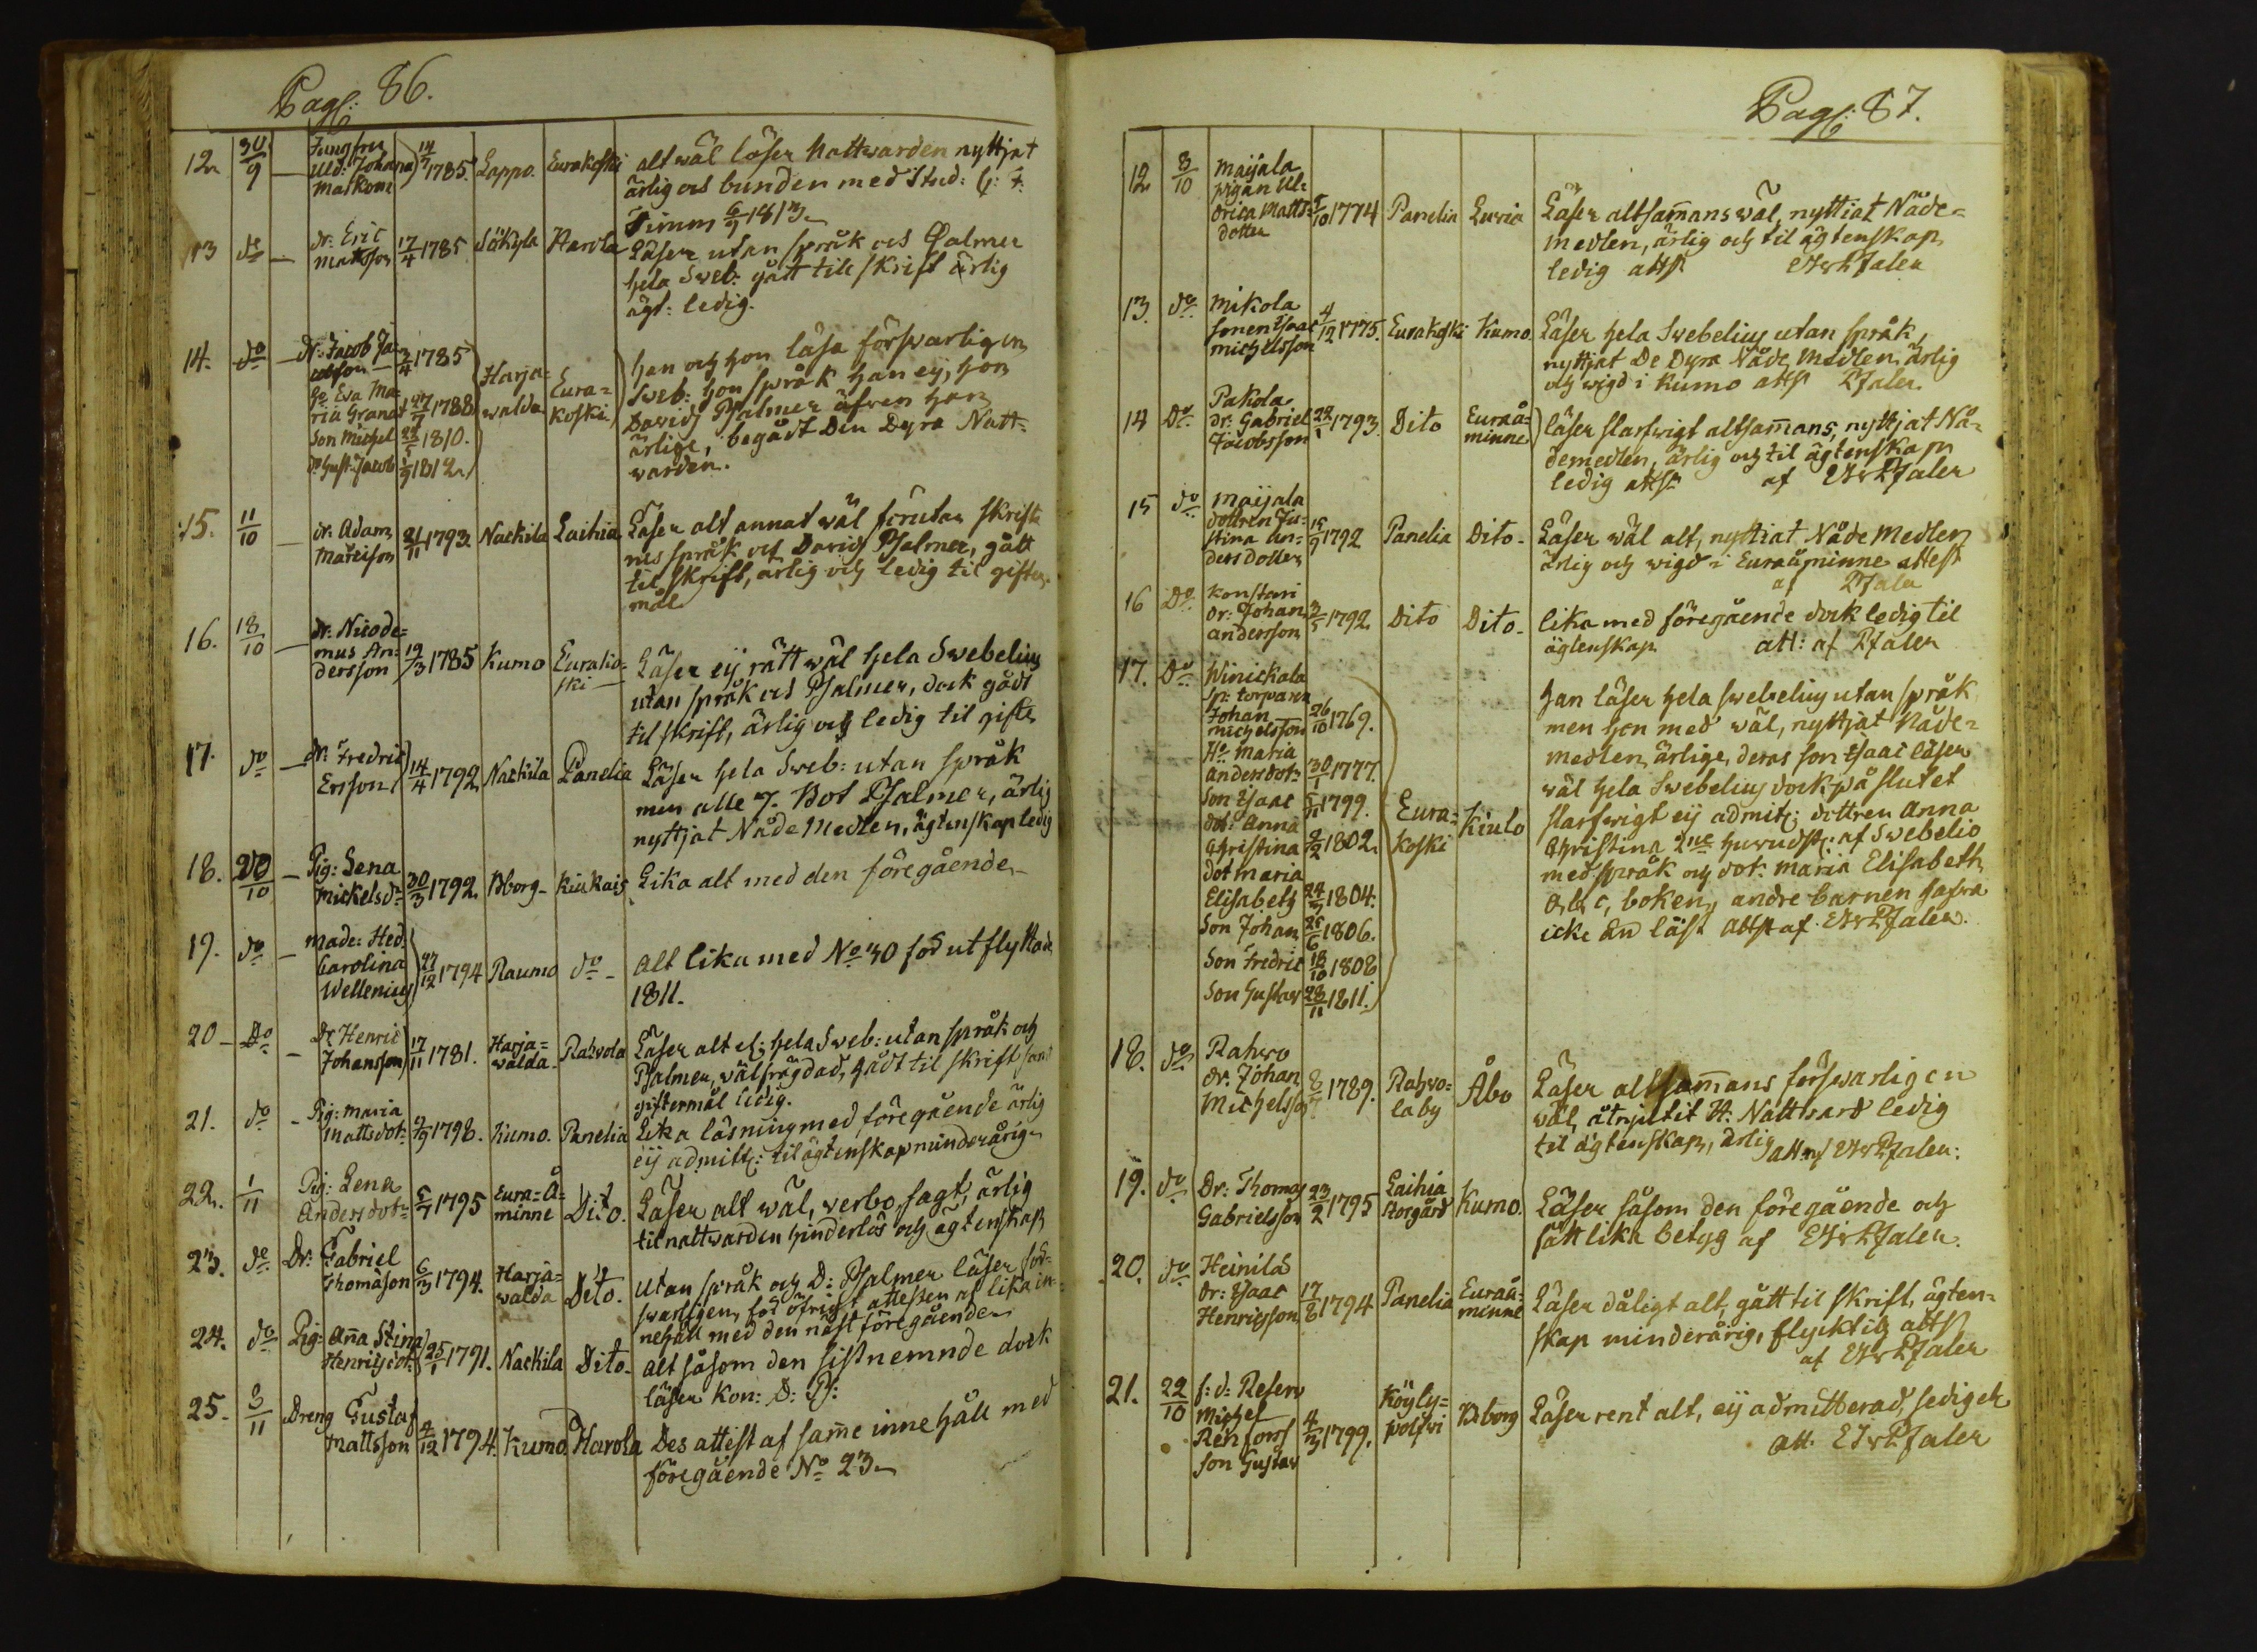 Pag: 86.
12. 30/9 — Jungfru Uld: Johana Maskoni 14/7 1785. Lappo. Eurakoski alt wäl läser Nattwarden nyttjat
ärlig och bunden med Stud: G: F:
Timm 6/9 1813.
13 do — dr: Eric Mattsson 17/4 1785 Säkyla Harola Läser utan språk och Psalmer
hela Sweb: gått till skrift ärlig
ägt: ledig.
14. do — Dr: Jacob Jacobson 3/4 1785
Ha Eva Maria Granat 1788
Son Michel 1810.
do Gust: Jacob 1812
Harjawalda Eurakoski
han och hon läsa förswarligen
Sweb: hon språk han ey, hon
Davids Psalmer äfwen hon
ärlige, begådt Den Dyra Nattwarden.
15. 11/10 — dr. Adam Matsson 21/11 1793. Nackila Laihia Läser alt annat wäl förutan skriftenes
språk och Davids Psalmer, gått
til skrift, ärlig och ledig til giftermål.
16. 18/10 — dr. Nicodemus Andersson 19/3 1785 Kumo Eurakoski
Läser eij rätt wäl hela Swebelius
utan språk och Psalmer, dock gådt
til skrift, ärlig och ledig til gifte
17. do — dr. Fredric Ersson 14/4 1792 Nackila Panelia Läser hela Sweb: utan språk
men alle 7. Bot Psalmer, ärlig
nyttjat Nåde Medlen, ägtenskap ledig
18. 20/10 — Pig: Lena Mickelsdr 30/3 1792. Bborg Kiukais Lika alt med den föregående
19. do — Made: Hed. Carolina Wellenius 27/12 1794 Raumo do — alt lika med No 30 för utflyttade
1811.
20 — Do — Dr Henric Johansson 17/11 1781. Harjawalda. Rahvola Läser alt el: hela Sweb: utan språk och
Psalmer, wälfrägdad, gådt til skrift samt
giftermål ledig.
21. do — Pig: Maria Mattsdotr 1798. Kumo. Panelia Lika läsning med föregående ärlig
eij admitt: til ägtenskap minderårig
22. 1/11 Pig: Lena Andersdotr 5/7 1795 Eura-Åminne Dito. Läser alt wäl, werbo sagt, ärlig
til nattwarden hinderlös och ägtenskap
23. do Dr: Gabriel Thomasson 6/3 1794. Harjawalda Dito. utan språk och D: Psalmer läser förswarligen,
för öfrigt attesten af lika innehåll
med den näst föregående
24. do Pig: Aña Stina Henricsdot: 25/1 1791. Nackila Dito. alt såsom den sistnemnde dock
läser Kon: D: P:
25. 3/11 Dreng Gustaf Mattsson 4/12 1794. Kumo Harola Des attest af sam̃e innehåll med
föregående No 23.
Pag: 87.
12 8/10 Maijala pigan Uldrica Mattsdotter 5/10 1774 Panelia Euria Läser altsam̃ans wäl, nyttiat Nådemedlen,
ärlig och til ägtenskap
ledig attst
13. do Mikola sonen Isaac Michelsson 4/12 1775. Eurakoski Kumo. Läser hela Swebelius utan språk,
nyttjat De Dyra Nåde Medlen ärlig
och wigd i Kumo attst
14 Do Pakola dr: Gabriel Jacobsson 22/1 1793. Dito Euraåminne läser slarfwigt altsam̃ans, nyttjat Nådemedlen,
ärlig och til ägtenskap
ledig attst af
15 do Maijala dottren Justina Andersdotter 15/9 1792 Panelia Dito. Läser wäl alt, nyttiat Nåde Medlen
ärlig och wigd i Euraåminne attest
af
16 Do Konstari dr: Johan Andersson 3/5 1792. Dito Dito. lika med föregående dock ledig til
ägtenskap att: af
17. Do Winickala torparen Johan Michelsson 26/10 1769.
Ho Maria Andersdotr 30/1 1777.
Son Isaac 5/11 1799.
dotr Anna Christina 2/2 1802.
dot Maria Elisabeth 24/7 1804.
Son Johan 25/6 1806.
Son Fredric 18/10 1808
Son Gustav 28/11 1811.
Eurakoski Kiulo
han läser hela Swebelius utan språk
men hon med wäl, nyttjat Nådemedlen
ärlige, deras son Isaac läser
wäl hela Swebelius dock på slutet
slarfwigt eij admit: dottren Anna
Christina 2ne huwudst: af Swebelio
med språk och dot: Maria Elisabeth
a, b, c, boken, andre barnen hafwa
icke än läst attst af
18. do Rahvo dr. Johan Michelsson 8/7 1789. Rahvola by Åbo Läser altsam̃ans förswarligen
wäl, åtnjutit H: Nattvard ledig
til ägtenskap, ärlig att af
19. do Dr: Thomas Gabrielsson 23/2 1795 Laihia Storgård Kumo. Läser såsom den föregående och
fått lika betyg af
20. do Heinilä dr: Isaac Henricsson 17/8 1794 Panelia Euraåminne Läser dåligt alt, gått til skrift, ägtenskap
minderårig, flycktig attst
af
21. 22/10 f: d: Reserv Michel Renfors son Gustav 4/3 1799. Köylypolfwi Bborg Läser rent alt, eij admitterad, sedig etc
att.